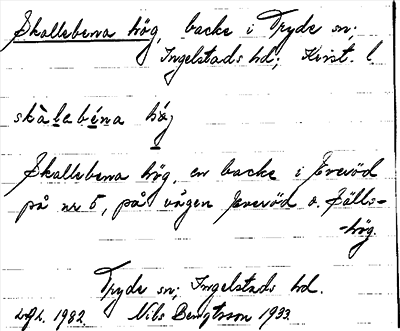 Skallebena hög, backe i Tryde sn;
Ingelstads hd; Krist. l
skàlebéna hö́g
Skallebena hög, en backe i Everöd
på nr 5, på vägen Everöd o. Fälls=
=hög.
Tryde sn; Ingelstads hd.
1932. Nils Bengtsson 1933